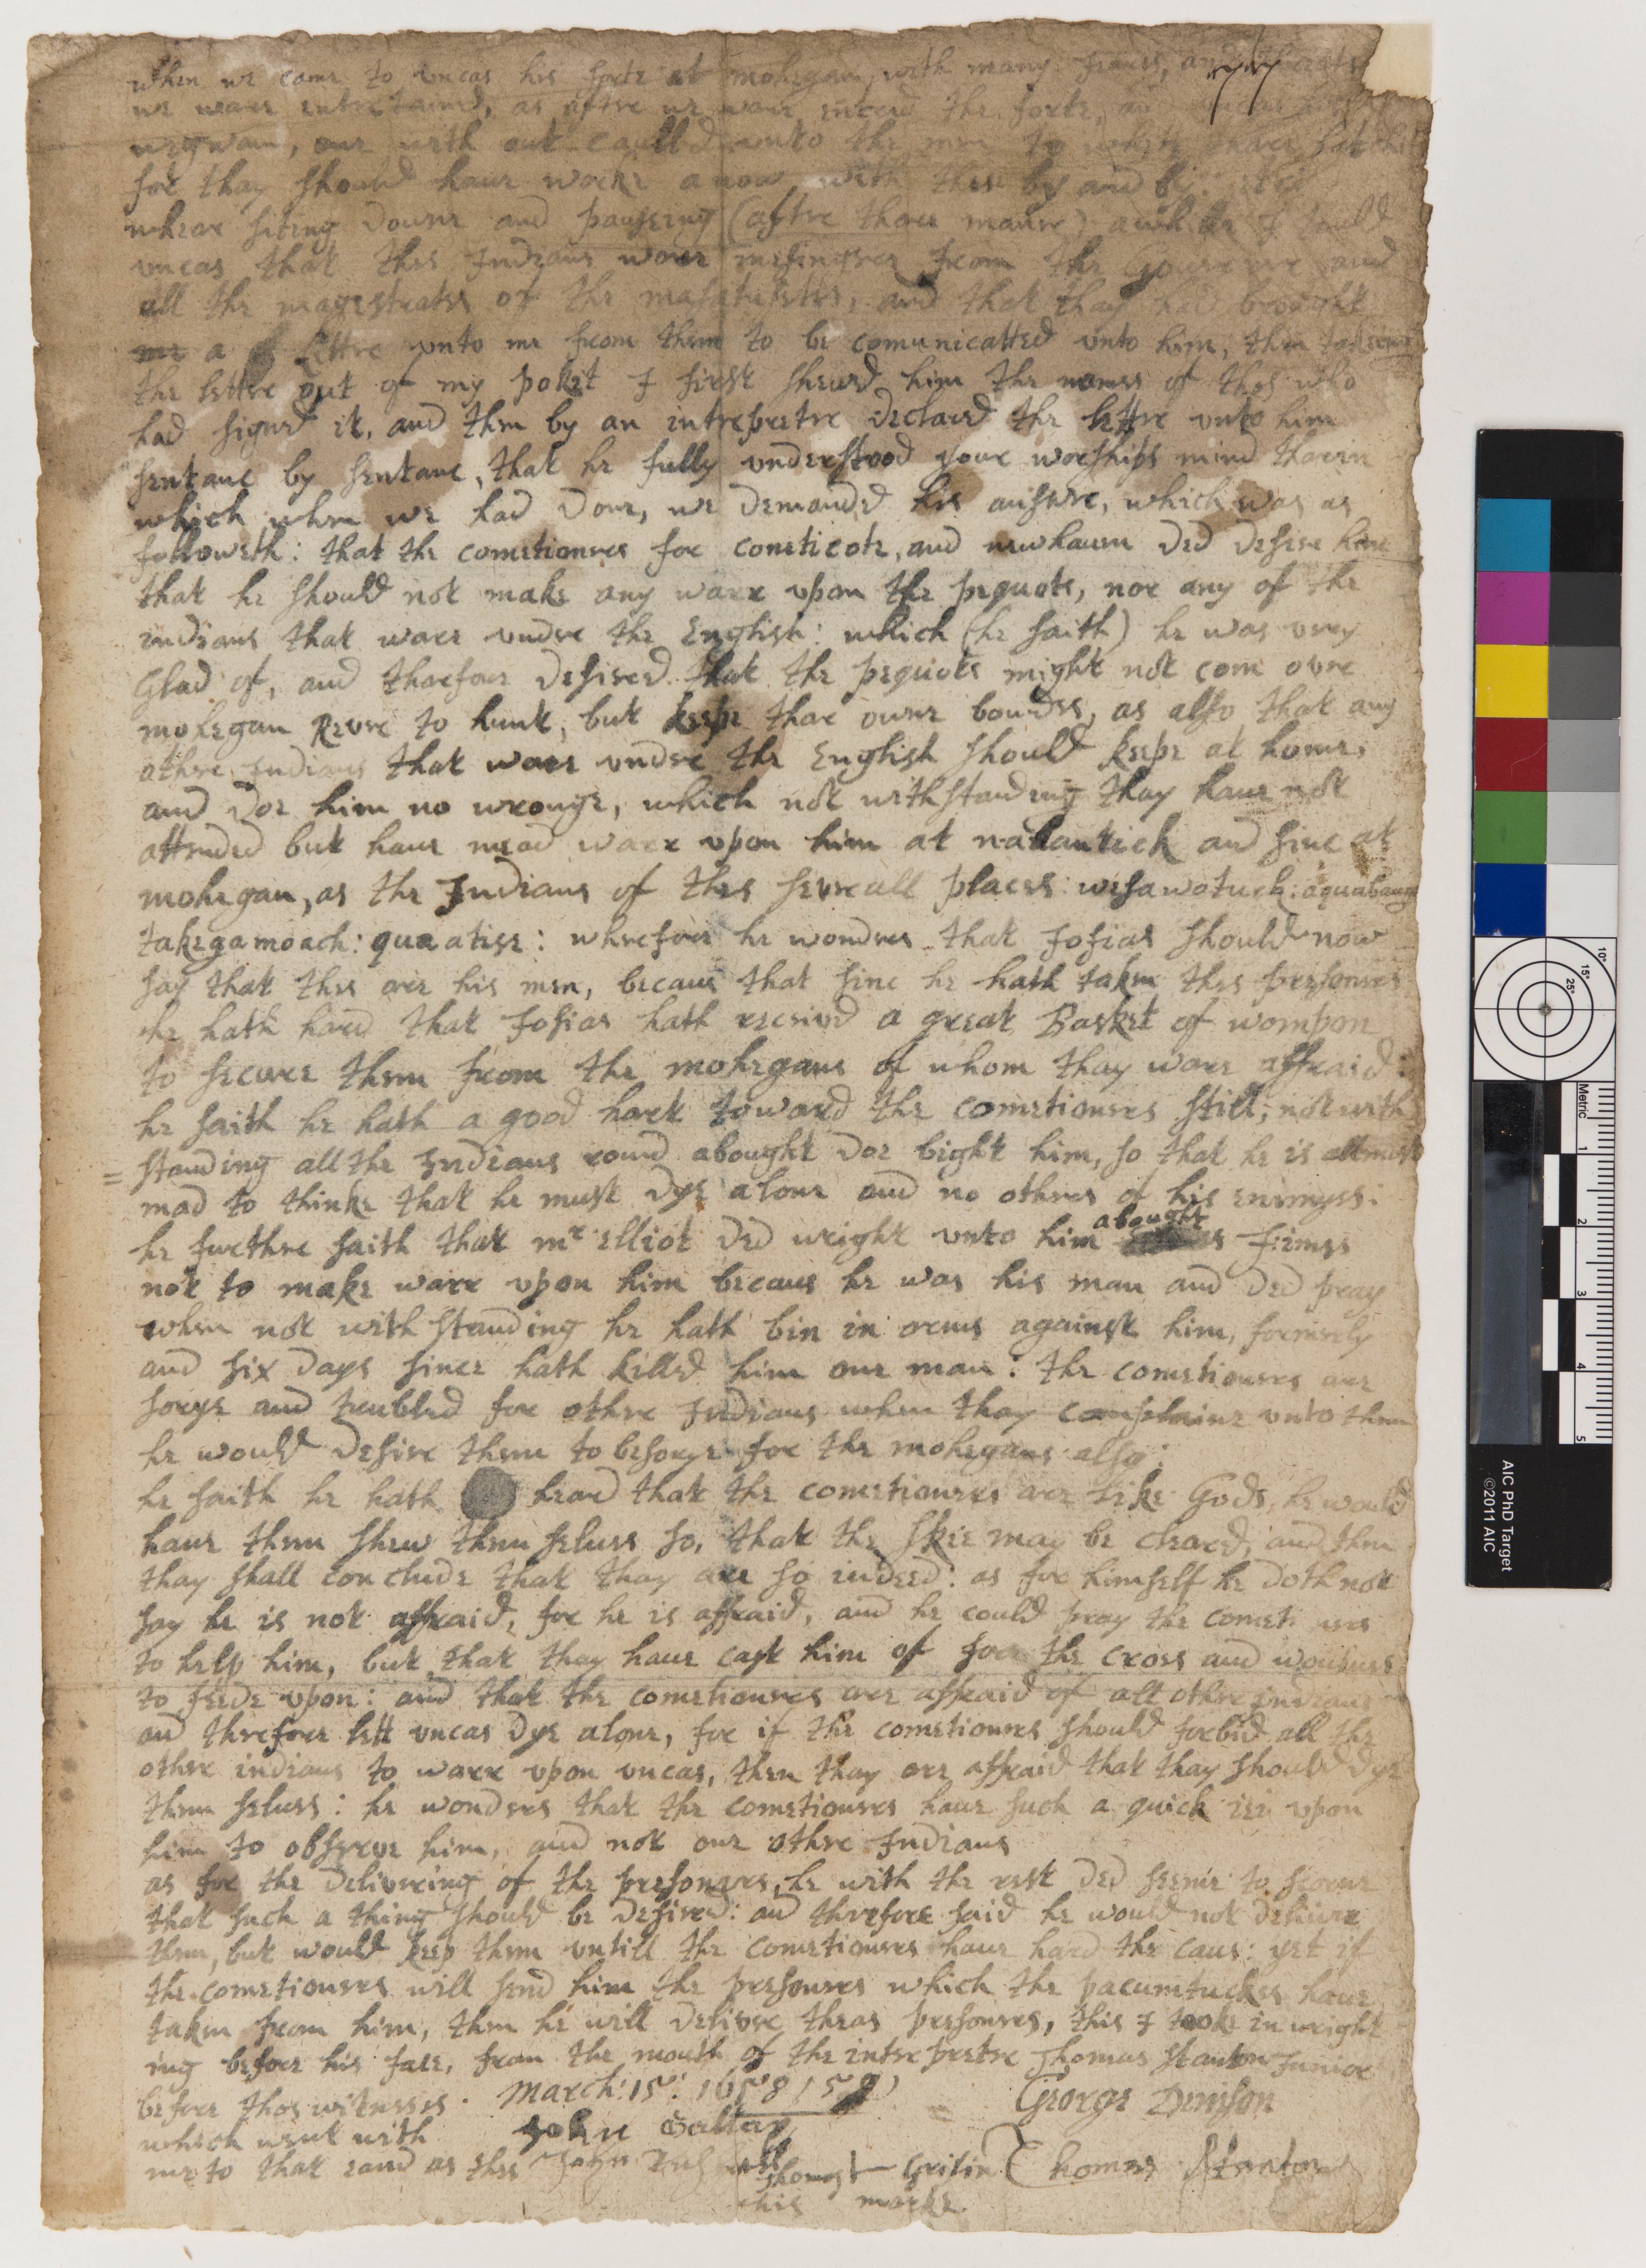 when we came to vncas his forte at mohegan, with many frowns, and
we ware entretained, as aftre we ware entred the forte, and
wegwam, one with out caulld unto the men to whett thare hatchits
for thay should haue worke anow with them by and by:
wheare siting downe and pauseing (aftre thare maner) awhile I tould
vncas that thes Indians ware mesingres from the Gouernre and
all the magestrates of the masatusetes, and that thay had brought
me a lettre vnto me from them to be comunicatted vnto him, then takeing
the lettre out of my poket I first shewed him the names of thos who
had signed it, and then by an intrepretre declared the lettre vnto him
sentanc by sentanc, that he fully vnderstood youre worships mind tharin
which when we had done, we demanded his answre, which was as
followeth: that the cometionres for coneticote, and newhauen ded desire him
that he should not make any warr vpon the pequots, nor any of the
indians that ware vndre the English: which (he saith) he was very
Glad of, and tharefore desired that the pequots might not com ovre
mohegan Revre to hunt, but keepe thar owne boundes, as also that any
othre Indians that ware vndre the English should keepe at home,
and doe him no wronge, which not withstanding thay haue not
attended but haue mead warr vpon him at nahantick and sinc at
mohegan, as the Indians of thes sevreall places: wesawotuck: aquabaug
takegamoach: quaatise: wherefore he wondres that Josias should now
say that thes are his men, becaus that sinc he hath taken thes presonres
he hath hard that Josias hath received a great Basket of wompon
to secure them from the mohegans of whom thay ware affraid:
he saith he hath a good hart toward the cometionres still, not with
= standing all the Indians round abought doe bight him, so that he is allmost
mad to thinke that he must dye alone and no othres of his enemyes:
he furthre saith that mr Elliot ded wright vnto him abought Jiemes
not to make warr vpon him becaus he was his man and ded pray
when not with standing he hath bin in arms against him, formerly
and six days since hath killed him one man: the cometionres are
sorye and trubbled for othre Indians when thay complaine vnto them
he would desire them to be sorye for the mohegans also:
he saith he hath heard that the cometionres are like Gods, he would
haue them shew them selues so, that the skie may be cleared, and then
thay shall conclude that thay are so indeed: as for himself he doth not
say he is not affraid, for he is affraid, and he could pray the cometionres
to help him, but that thay haue cast him of for the cross and
to feede vpon: and that the cometionres are affraid of all othre indians
and threfore lett vncas dye alone, for if the cometionres should forbid all the
othre indians to warr vpon vncas, then thay are affraid that thay should dye
them selues: he wondres that the cometionres haue such a quick iei vpon
him to obsreve him, and not one othre Indians
as for the delivering of the presonres, he with the rest ded seeme to scorne
that such a thing should be desired: and threfore said he would not deliure
them, but would keep them vntill the cometionres haue hard the caus: yet if
the cometionres will send him the presonres which the pacumtuckes haue
taken from him, then he will delivre theas presonres, this I tooke in wright
ing before his face, from the mouth of the intrepretre Thomas Stanton Junior
before thos witnesses. March: 15: 1658/59 George Denison
which went with John Gallop
me to that eand as thes John Thomas Grifin Thomas Stanton
his marke.